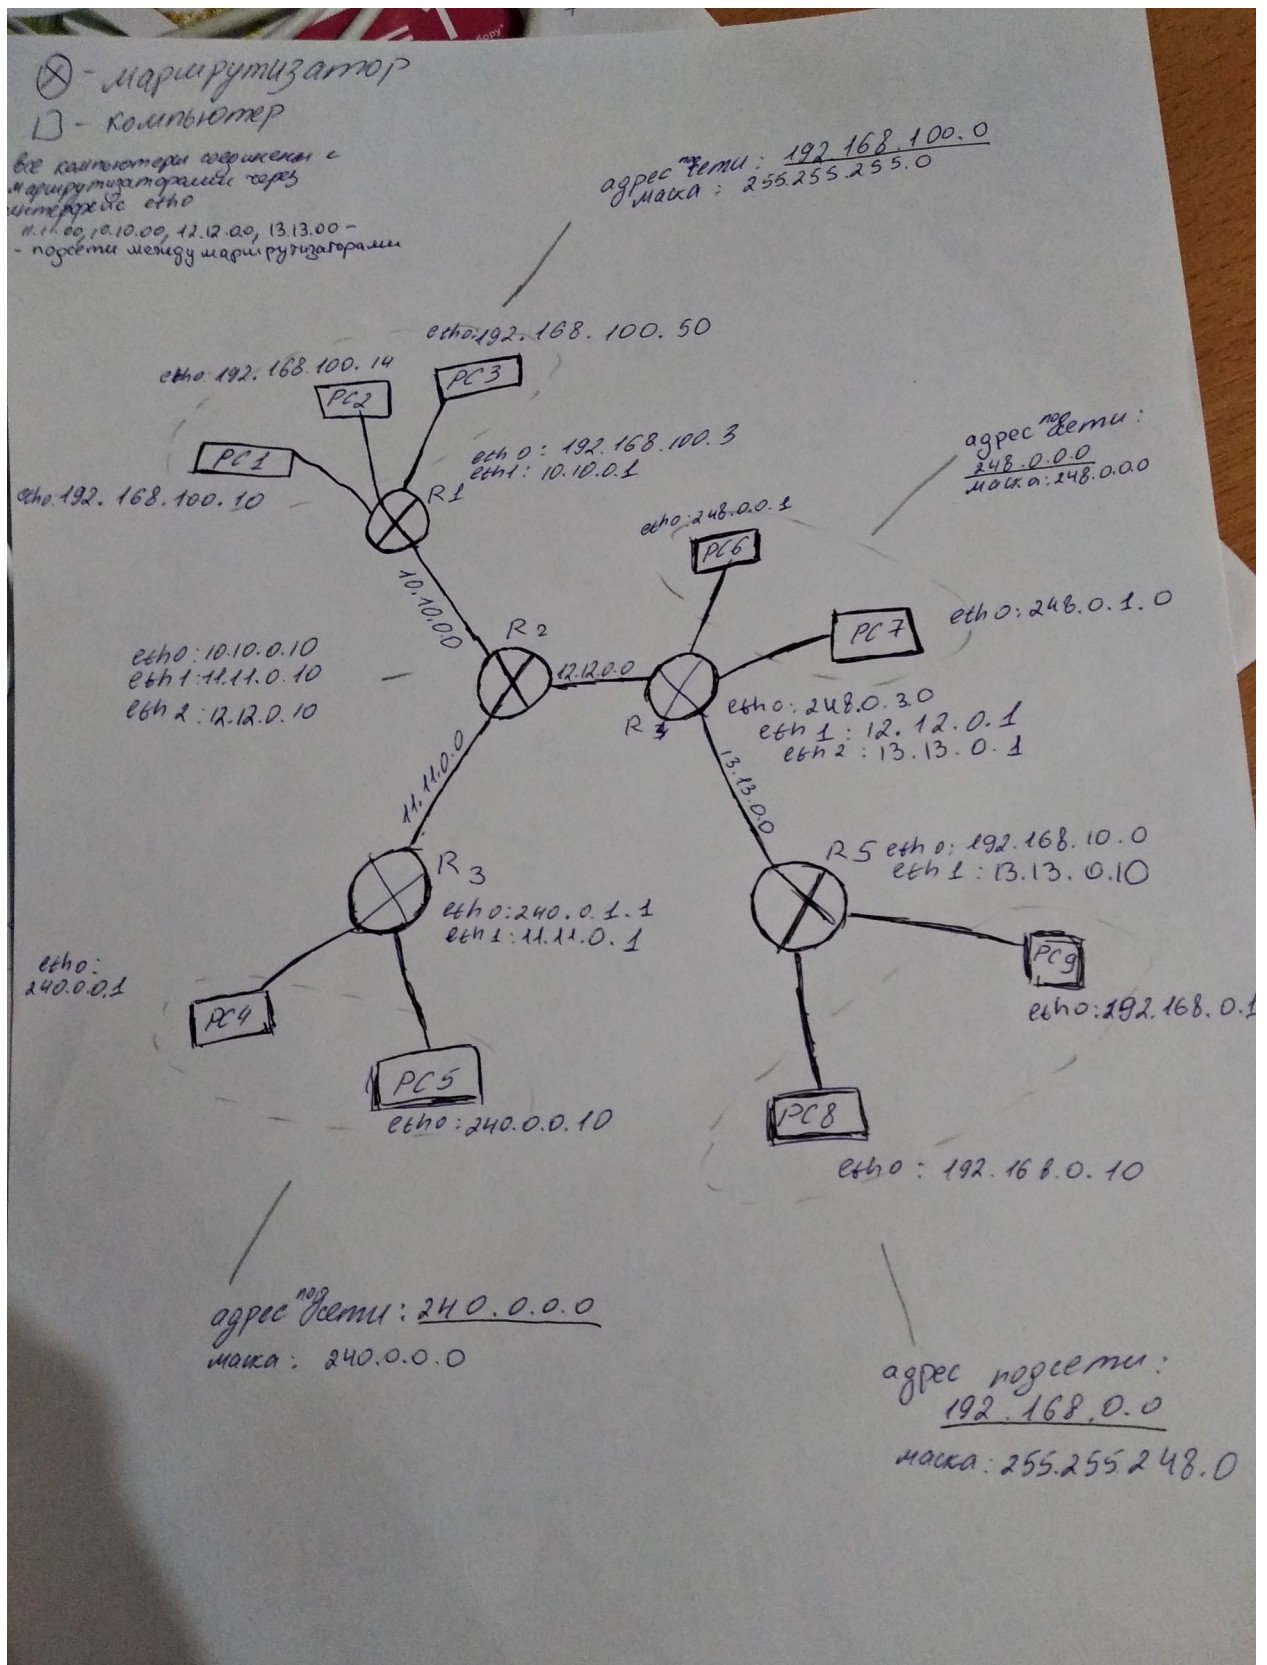 - маршрутизатор
- компьютер
все компьютеры соединены с
маршрутизаторами через
интерфейс eth0
11.11.0.0, 10.10.0.0, 12.12.0.0, 13.13.0.0 -
- подсети между маршрутизаторами
адрес подсети: 192.168.100.0
маска: 255.255.255.0
eth0:192.168.100.50
eth0:192.168.100.14
PC3
PC2
PC1
eth0:192.168.100.10
eth0: 192.168.100.3
eth1: 10.10.0.1
R1
адрес подсети:
248.0.0.0
маска: 248.0.0.0
eth0:248.0.0.1
PC6
PC7
eth0:248.0.1.0
10.10.0.0
R2
eth0:10.10.0.10
eth1:11.11.0.10
eth2:12.12.0.10
12.12.0.0
R4
eth0:248.0.3.0
eth1:12.12.0.1
eth2:13.13.0.1
11.11.0.0
13.13.0.0
R3
eth0:240.0.1.1
eth1:11.11.0.1
R5 eth0:192.168.10.0
eth1:13.13.0.10
eth0:
240.0.0.1
PC4
PC5
eth0:240.0.0.10
PC9
eth0:192.168.0.1
PC8
eth0:192.168.0.10
адрес подсети: 240.0.0.0
маска: 240.0.0.0
адрес подсети:
192.168.0.0
маска: 255.255.248.0